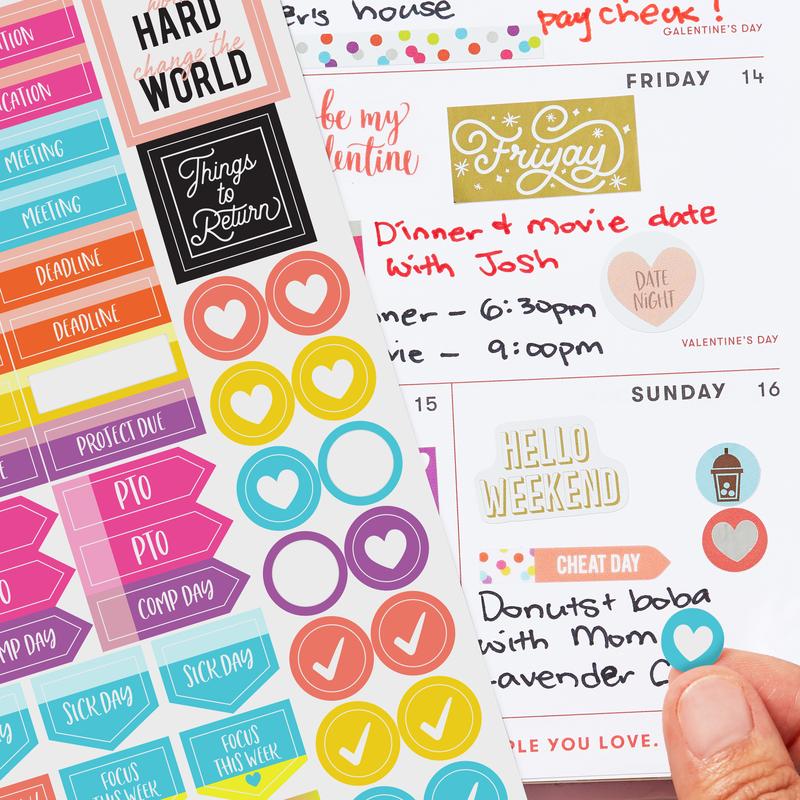 HARD
change the
WORLD
MEETING
MEETING
DEADLINE
DEADLINE
PROJECT DUE
Things
to
Return
PTO
PTO
COMP DAY
SICK DAY
SICK DAY
FOCUS
THIS WEEK
FOCUS
THIS WEEK
house
paycheck!
GALENTINE'S DAY
FRIDAY 14
be my
Friyay
Dinner & movie date
with Josh
DATE
NIGHT
6:30pm
9:00pm
VALENTINE'S DAY
15
SUNDAY 16
HELLO
WEEKEND
CHEAT DAY
Donuts + boba
with Mom
Lavender
YOU LOVE.